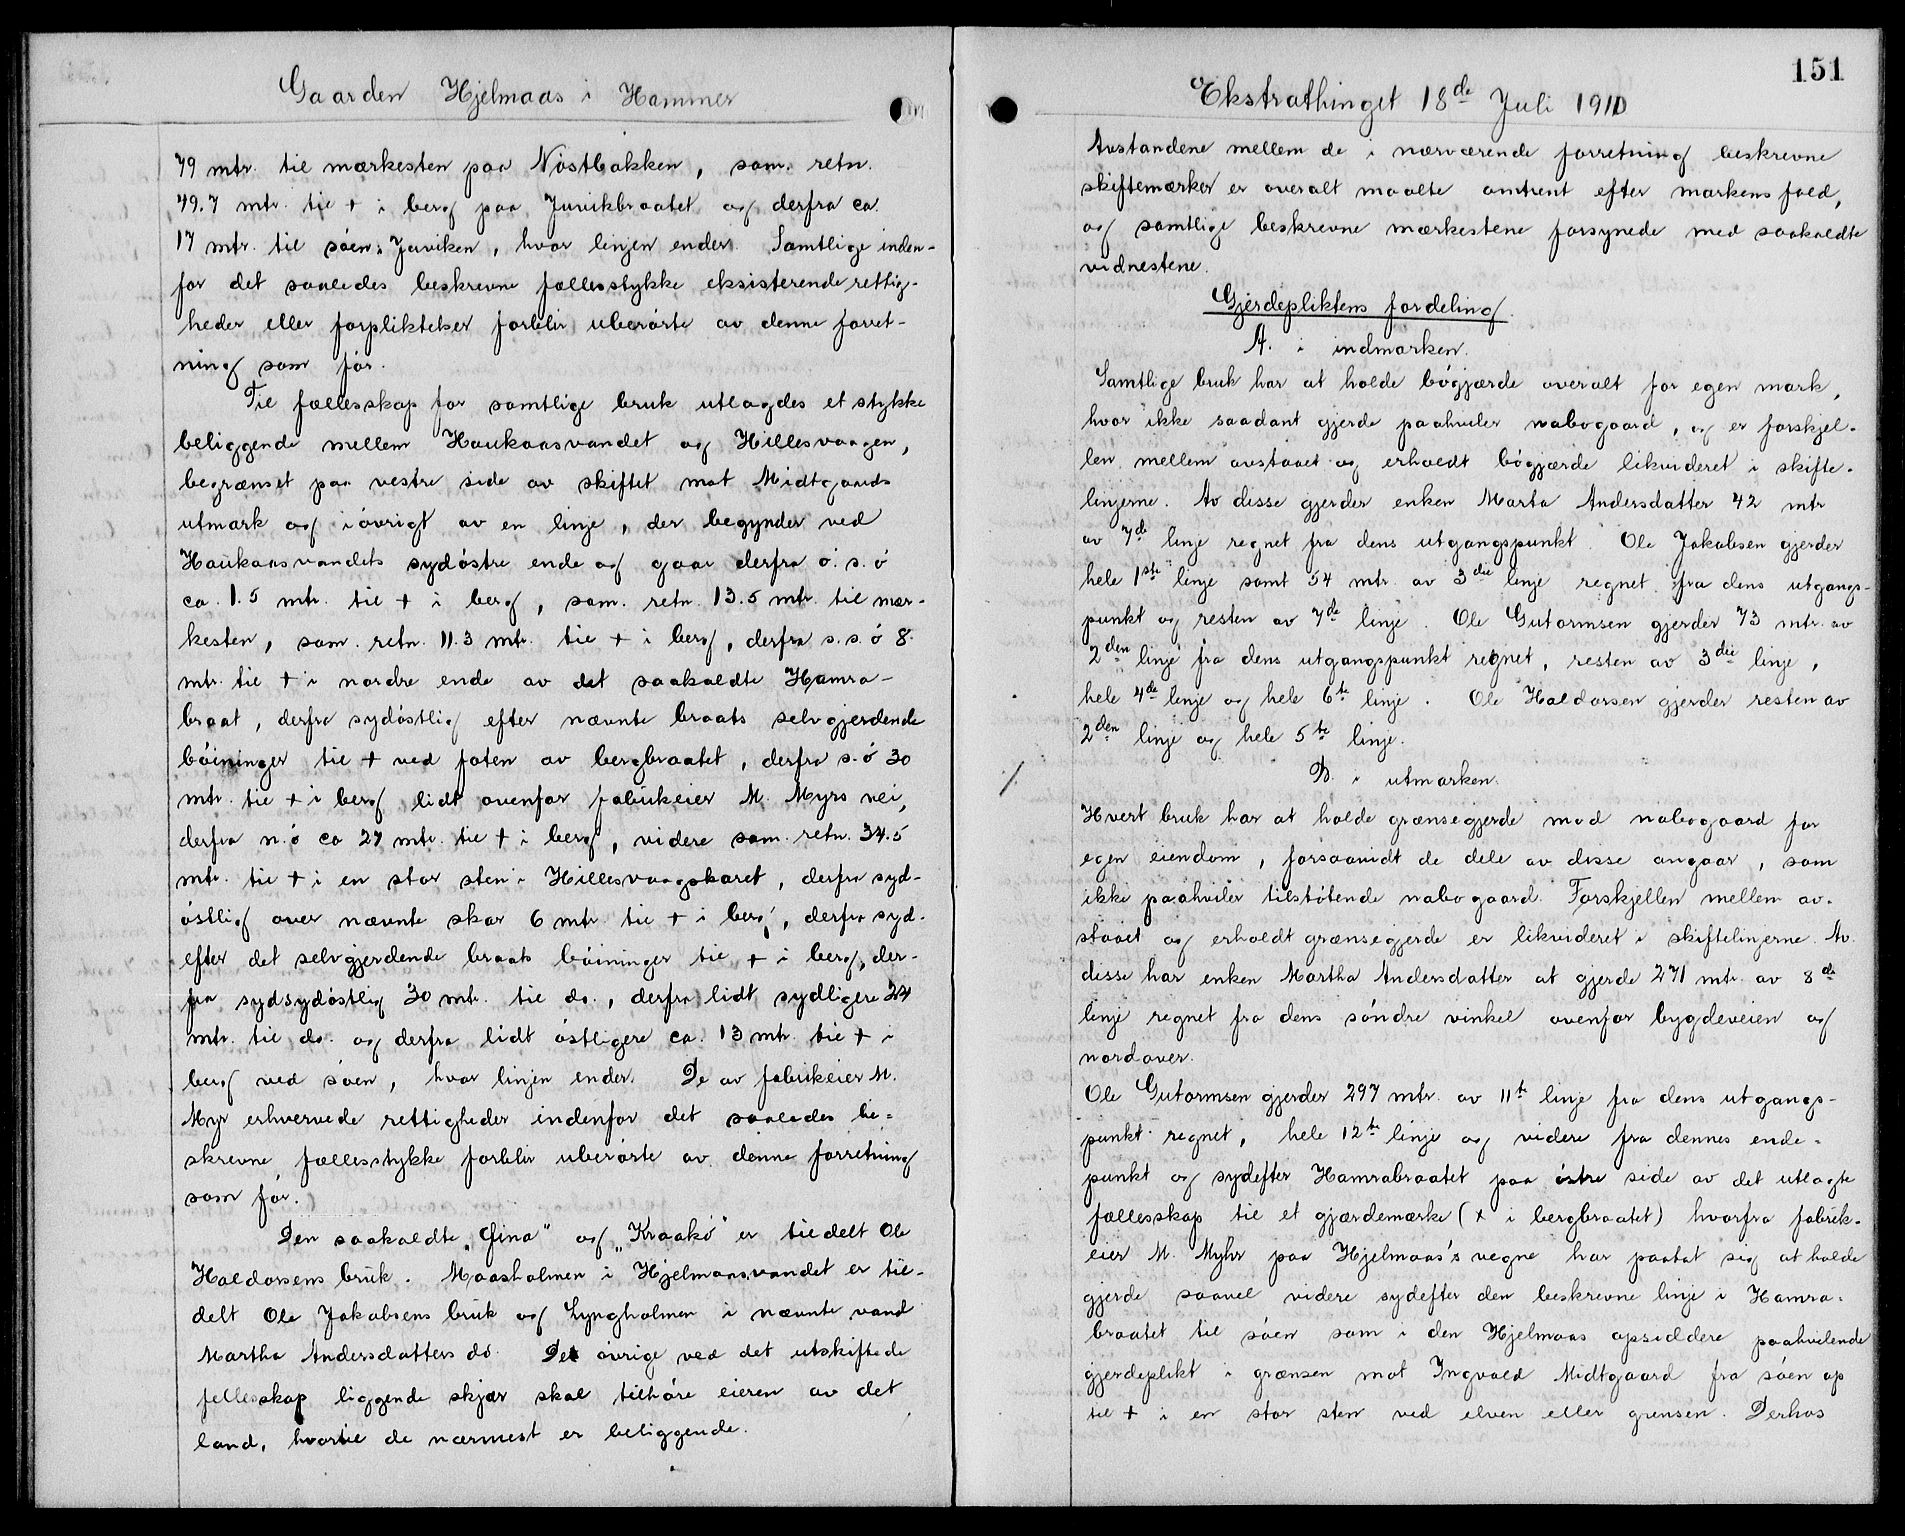 Gaarden Hjelmaas i Hammer
79 mtr. til mærkesten paa Nøstbakken, sam. retn.
49.7 mtr. til + i berg paa Juvikbraatet og derfra ca.
17 mtr. til søen i Juviken, hvor linjen ender. Samtlige inden-
for det saaledes beskrevne fællesstykke eksisterende rettig-
heder eller forpliktelser forblir uberørte av denne forret-
ning som før.
Til fællesskap for samtlige bruk utlagdes et stykke
beliggende mellem Haukaasvandet og Hillesvaagen,
begrænset paa vestre side av skiftet mot Midtgaards
utmark og iøvrigt av en linje, der begynder ved
Haukaasvandets sydøstre ende og gaar derfra ø. s. ø
ca. 1.5 mtr. til + i berg, sam. retn. 13.5 mtr. til mær-
kesten, sam. retn. 11.3 mtr. til + i berg, derfra s. s. ø 8.
mtr. til + i nordre ende av det saakaldte Hamra-
braat, derfra sydøstlig efter nævnte braats selvgjerdende
bøininger til + ved foten av bergbraatet, derfra s. ø 30
mtr. til + i berg lidt ovenfor fabrikeier M. Myrs vei,
derfra n. ø ca 27 mtr. til + i berg, videre sam. retn. 34.5
mtr. til + i en stor sten i Hillesvaagskaret, derfra syd-
østlig over nævnte skar 6 mtr til + i berg, derfra syd-
efter det selvgjerdende braats bøininger til + i berg, der-
fra sydsydøstlig 30 mtr. til do., derfra lidt sydligere 24
mtr. til do. og derfra lidt østligere ca. 13 mtr. til + i
berg ved søen, hvor linjen ender. De av fabrikeier M.
Myr erhvervede rettigheder indenfor det saaledes be-
skrevne fællesstykke forblir uberørte av denne forretning
som før.
Den saakaldte „Gina" og „Kraakø" er tildelt Ole
Haldorsens bruk. Maasholmen i Hjelmaasvandet er til-
delt Ole Jakobsens bruk og Lyngholmen i nævnte vand
Martha Andersdatters do. De øvrige ved det utskiftede
fellesskap liggende skjær skal tilhøre eieren av det
land, hvortil de nærmest er beliggende.
151
Ekstrathinget 18de Juli 1910
Avstandene mellem de i nærværende forretning beskrevne
skiftemærker er overalt maalte omtrent efter markens fald,
og samtlige beskrevne mærkestene forsynede med saakaldte
vidnestene.
Gjerdepliktens fordeling.
A. i indmarken.
Samtlige bruk har at holde bøgjærde overalt for egen mark,
hvor ikke saadant gjerde paahviler nabogaard, og er forskjel-
len mellem avstaaet og erholdt bøgjærde likvideret i skifte-
linjerne. Av disse gjerder enken Marta Andersdatter 42 mtr
av 7de linje regnet fra dens utgangspunkt. Ole Jakobsen gjerder
hele 1ste linje samt 54 mtr. av 3die linje regnet fra dens utgangs-
punkt og resten av 7de linje. Ole Gutormsen gjerder 73 mtr. av
2den linje fra dens utgangspunkt regnet, resten av 3die linje,
hele 4de linje og hele 6te linje. Ole Haldorsen gjerder resten av
2den linje og hele 5te linje.
B. i utmarken.
Hvert bruk har at holde grænsegjerde mod nabogaard for
egen eiendom, forsaavidt de dele av disse angaar, som
ikke paahviler tilstøtende nabogaard. Forskjellen mellem av-
staaet og erholdt grænsegjerde er likvideret i skiftelinjerne. Av
disse har enken Martha Andersdatter at gjerde 271 mtr. av 8de
linje regnet fra dens søndre vinkel ovenfor bygdeveien og
nordover.
Ole Gutormsen gjerder 297 mtr. av 11te linje fra dens utgangs-
punkt regnet, hele 12te linje og videre fra dennes ende-
punkt og sydefter Hamrabraatet paa østre side av det utlagte
fællesskap til et gjærdemærke (+ i bergbraatet) hvorfra fabrik-
eier M. Myhr paa Hjelmaas's vegne har paatat sig at holde
gjerde saavel videre sydefter den beskrevne linje i Hamra-
braatet til søen som i den Hjelmaas opsiddere paahvilende
gjerdeplikt i grænsen mot Ingvald Midtgaard fra søen op
til + i en stor sten ved elven eller grensen. Derhos